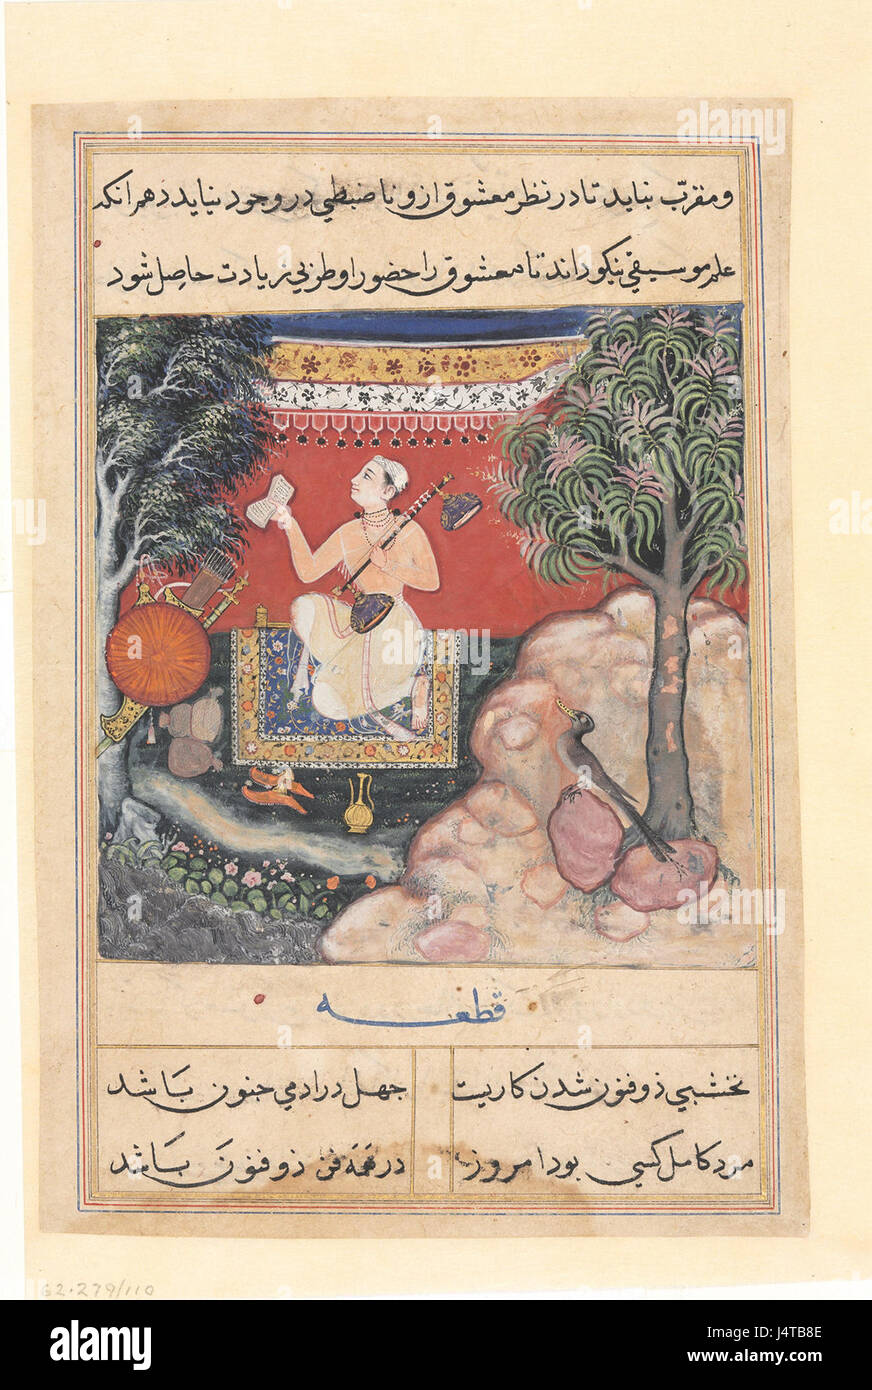 و مقرّب بناید تا در نظر معشوق ازو نا ضبطی در وجود نیاید دهم انکه
علم موسیقی نیکو داند تا معشوق را حضور او طربی زیادت حاصل شود
قطعه
نخشبی ذو فنون شدن کاریست
جهل در ادمی جنون باشد
مرد کامل کسی بود امروز
در همه فن ذو فنون باشد
62.279/110
alamy stock photo
J4TB8E
www.alamy.com